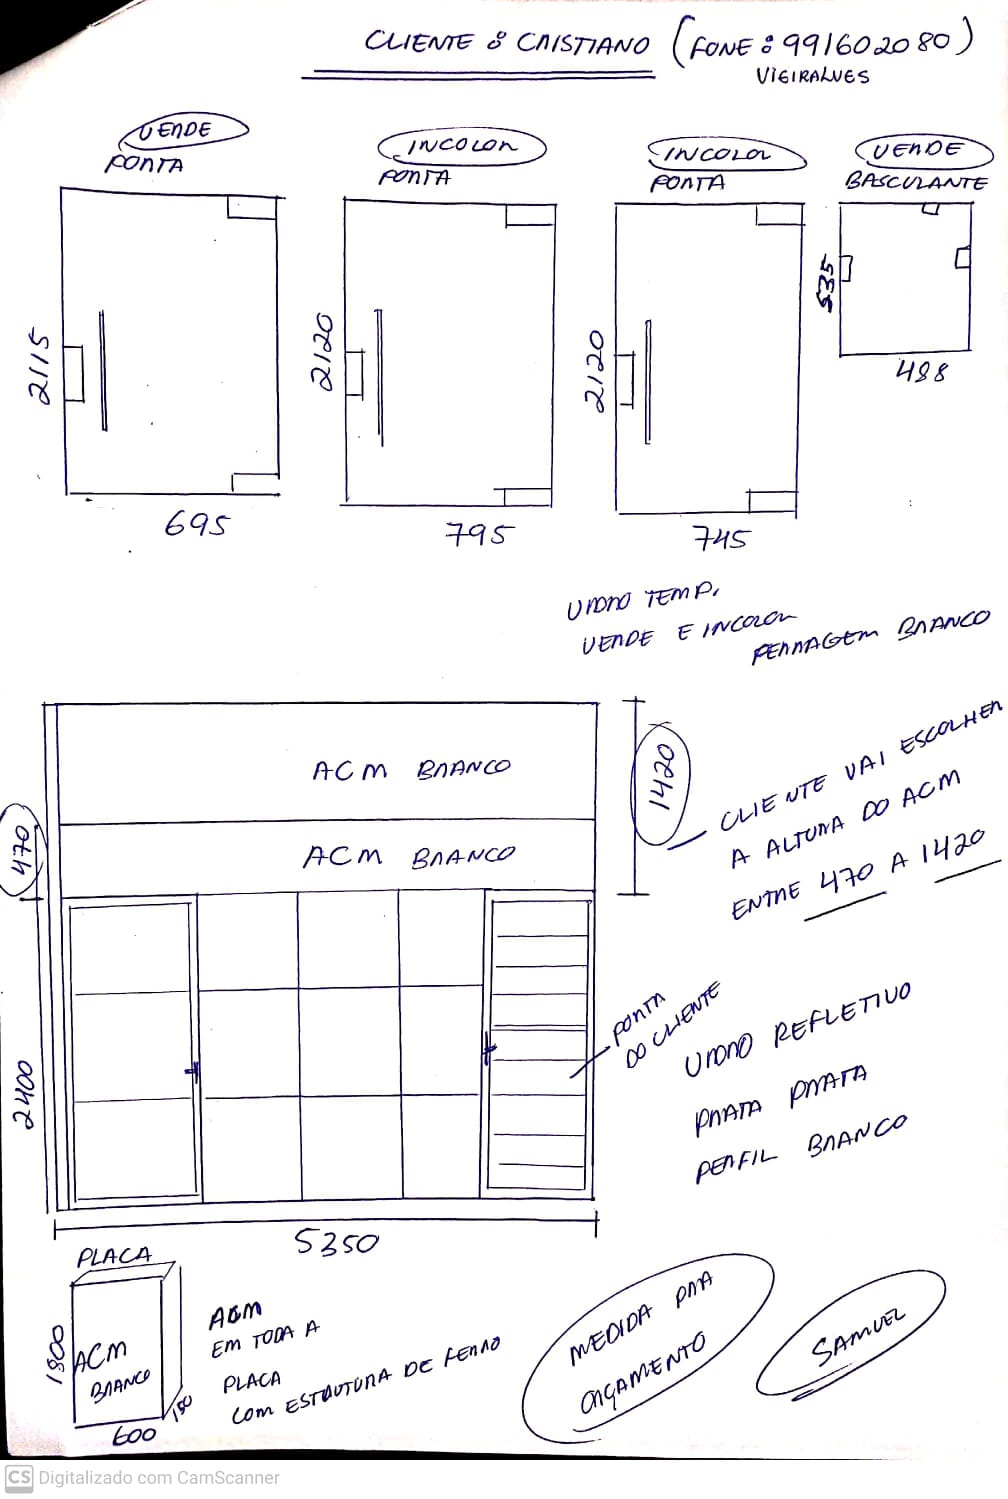 CLIENTE : CRISTIANO (FONE : 991602080)
VIEIRALVES
VERDE
PORTA
INCOLOR
PORTA
INCOLOR
PORTA
VERDE
BASCULANTE
2115
695
2120
795
2120
745
535
498
VIDRO TEMP.
VERDE E INCOLOR
FERRAGEM BRANCO
ACM BRANCO
ACM BRANCO
470
2400
5350
1420
CLIENTE VAI ESCOLHER
A ALTURA DO ACM
ENTRE 470 A 1420
PORTA
DO CLIENTE
VIDRO REFLETIVO
PRATA PRATA
PERFIL BRANCO
PLACA
1800
ACM
BRANCO
600
150
ACM
EM TODA A
PLACA
COM ESTRUTURA DE FERRO
MEDIDA PRA
ORÇAMENTO
SAMUEL
CS Digitalizado com CamScanner